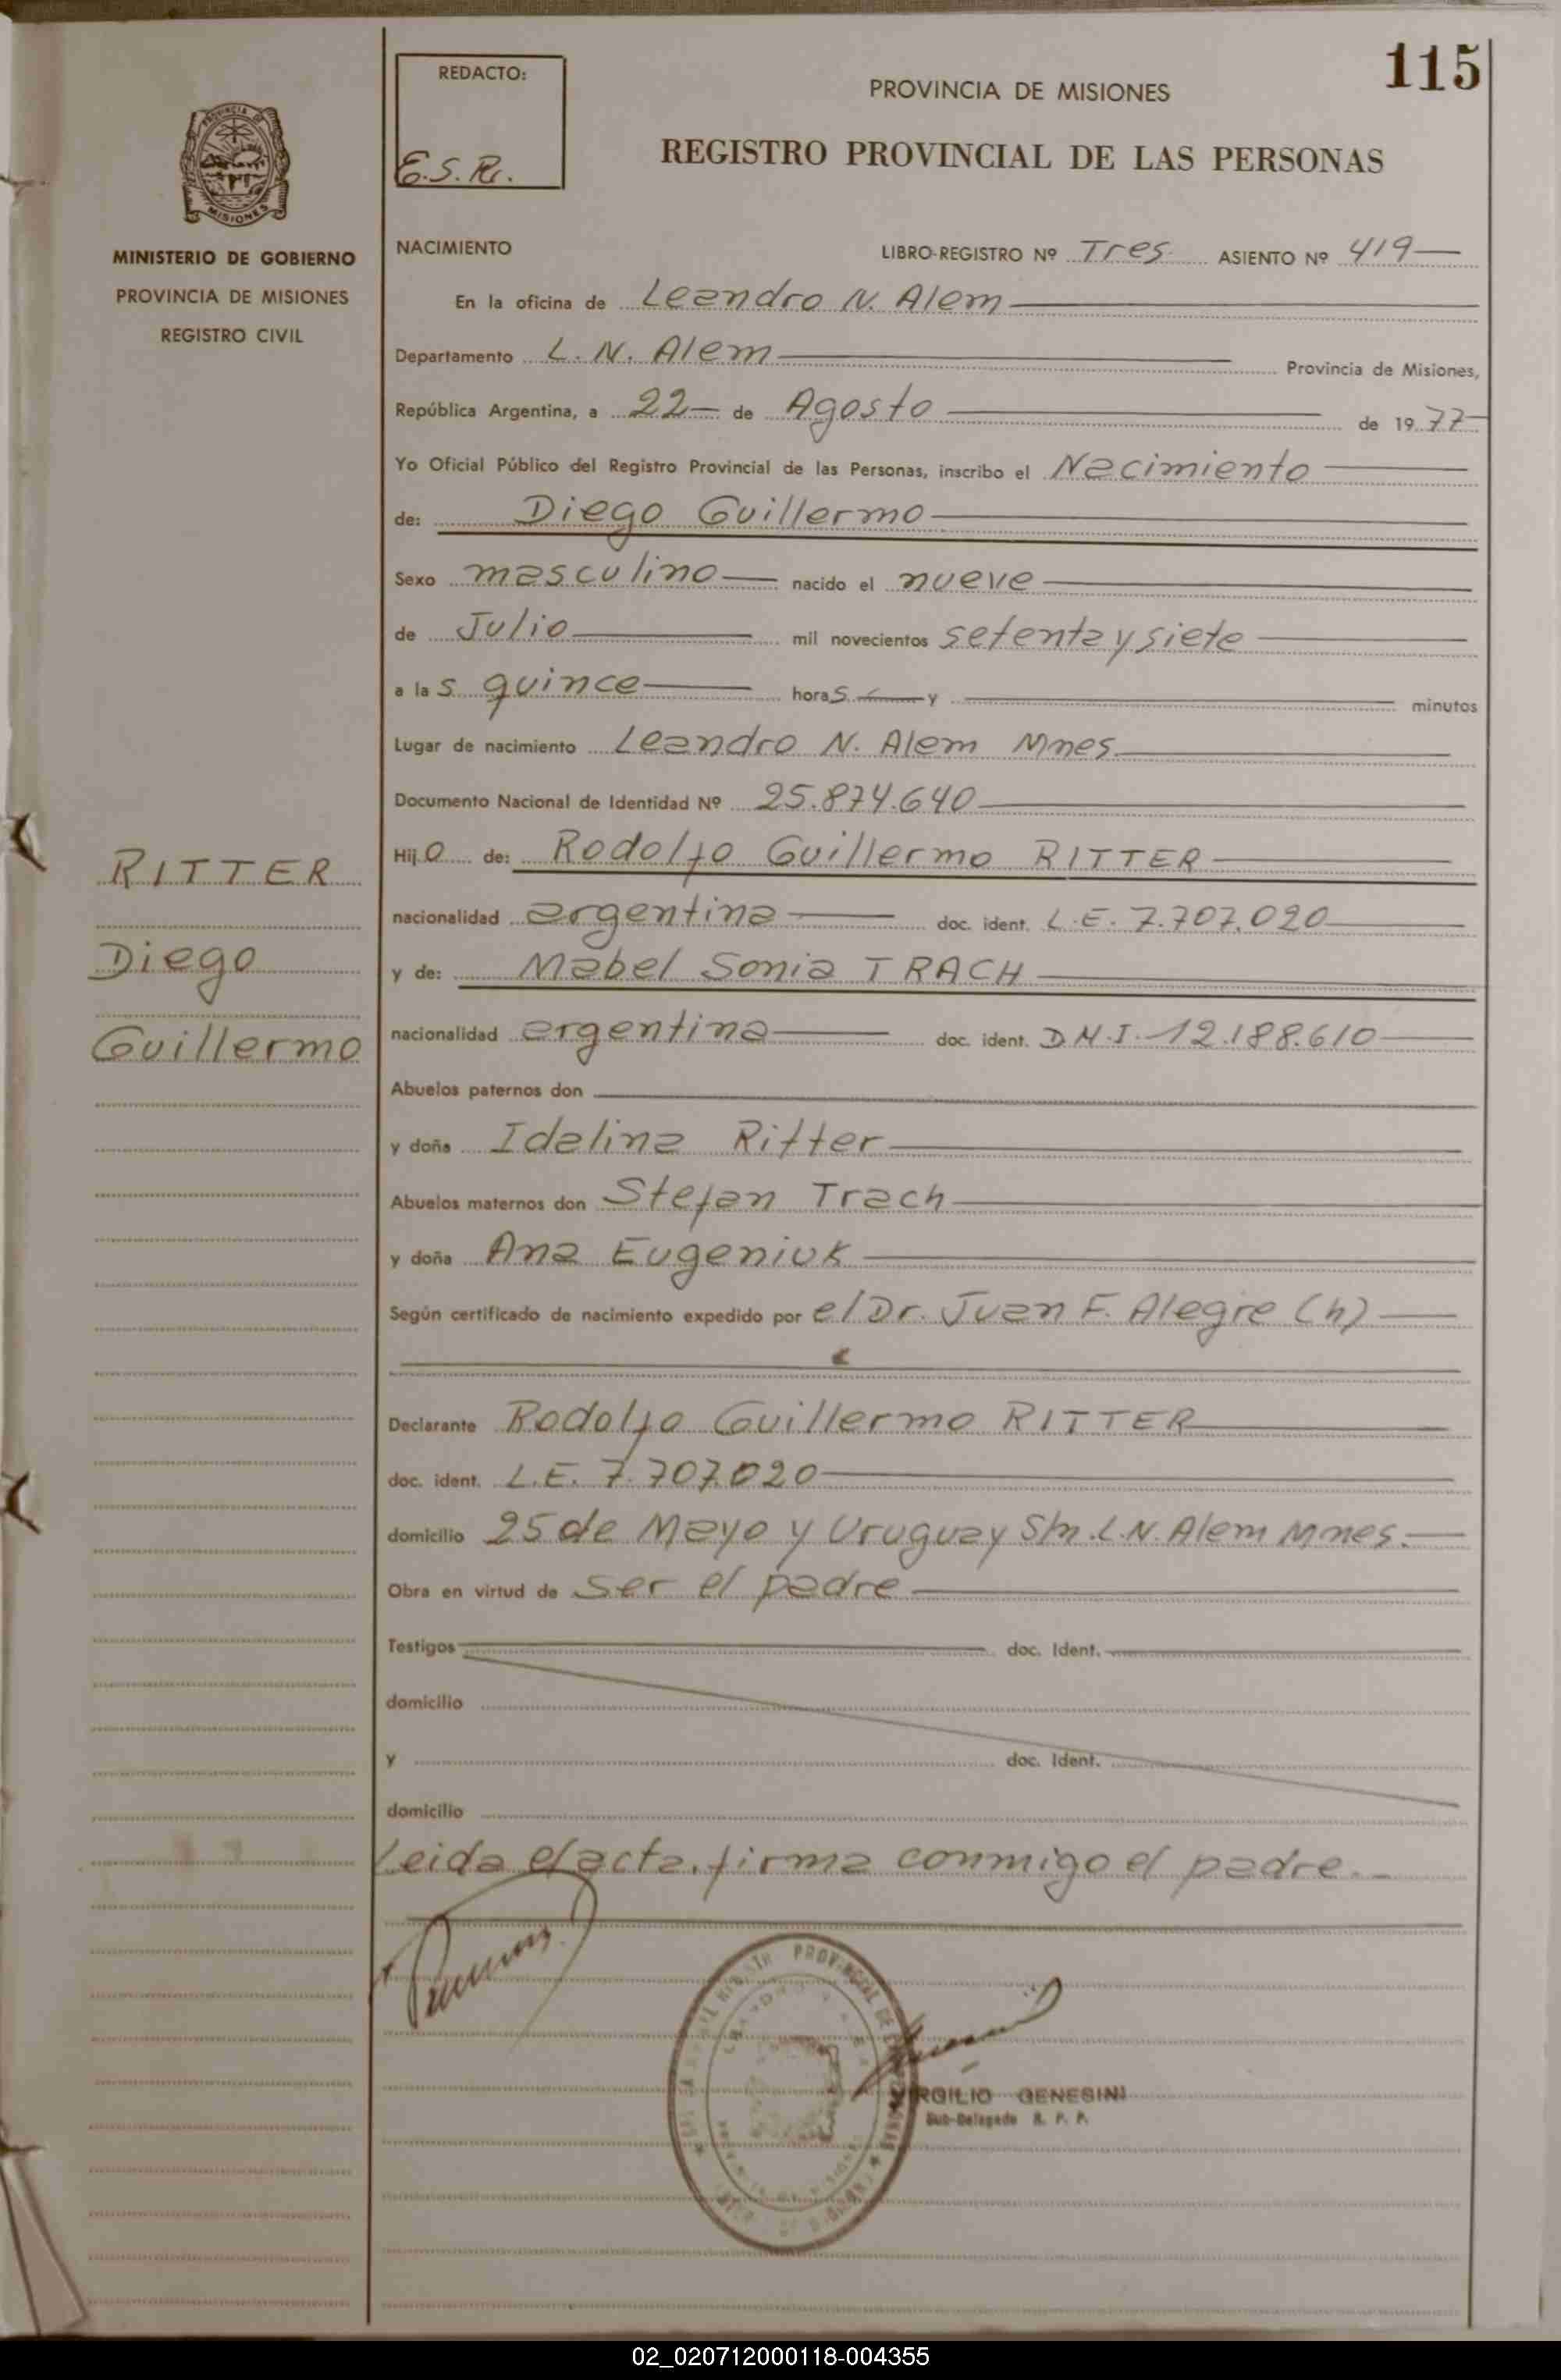 115
REDACTO:
E.S.R.
PROVINCIA DE MISIONES
REGISTRO PROVINCIAL DE LAS PERSONAS
MINISTERIO DE GOBIERNO
PROVINCIA DE MISIONES
REGISTRO CIVIL
RITTER
Diego
Guillermo
NACIMIENTO LIBRO-REGISTRO Nº Tres ASIENTO Nº 419
En la oficina de Leandro N. Alem
Departamento L. N. Alem Provincia de Misiones,
República Argentina, a 22 de Agosto de 1977
Yo Oficial Público del Registro Provincial de las Personas, inscribo el Nacimiento
de: Diego Guillermo
Sexo masculino nacido el nueve
de Julio mil novecientos setenta y siete
a las quince horas y minutos
Lugar de nacimiento Leandro N. Alem Mnes
Documento Nacional de Identidad Nº 25.874.640
Hijo de: Rodolfo Guillermo RITTER
nacionalidad argentina doc. ident. L.E. 7.707.020
y de: Mabel Sonia TRACH
nacionalidad argentina doc. ident. D.N.I. 12.188.610
Abuelos paternos don
y doña Idalina Ritter
Abuelos maternos don Stefan Trach
y doña Ana Eugeniuk
Según certificado de nacimiento expedido por el Dr. Juan F. Alegre (h)
Declarante Rodolfo Guillermo RITTER
doc. ident. L.E. 7.707.020
domicilio 25 de Mayo y Uruguay S/n. L.N. Alem Mnes.
Obra en virtud de ser el padre
Testigos doc. Ident.
domicilio
y doc. Ident.
domicilio
Leida el acta, firma conmigo el padre.
PROVINCIAL DE
VIRGILIO GENESINI
Sub-Delegado R. P. P.
02_020712000118-004355